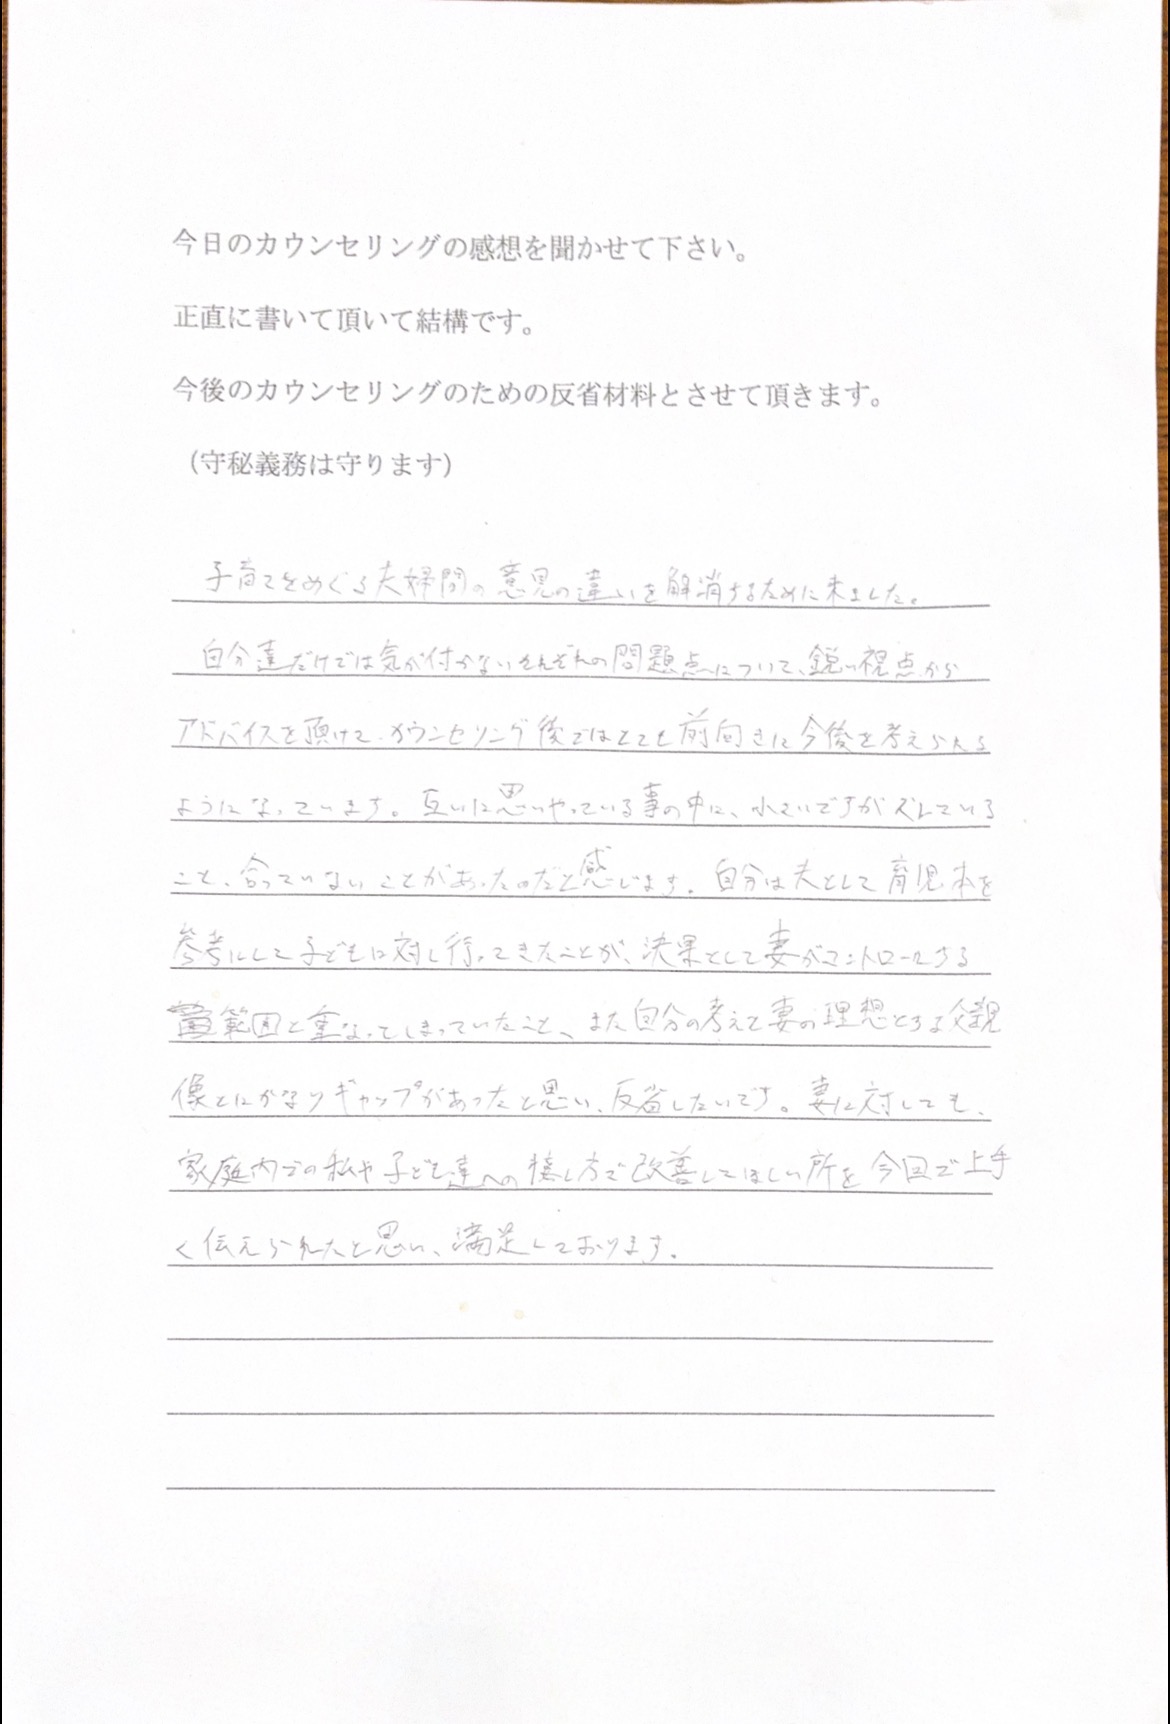 今日のカウンセリングの感想を聞かせて下さい。
正直に書いて頂いて結構です。
今後のカウンセリングのための反省材料とさせて頂きます。
（守秘義務は守ります）
子育てをめぐる夫婦間の意見の違いを解消するために来ました。
自分達だけでは気が付かないそれぞれの問題点について、鋭い視点から
アドバイスを頂けて、カウンセリング後ではとても前向きに今後を考えられる
ようになっています。互いに思いやっている事の中に、小さいですがズレている
こと、合っていないことがあったのだと感じます。自分は夫として育児本を
参考にして子どもに対し行ってきたことが、決果として妻がコントロールする
範囲と重なってしまっていたこと、また自分の考えと妻の理想とする父親
像とにかなりギャップがあったと思い、反省したいです。妻に対しても、
家庭内での私や子ども達への接し方で改善してほしい所を今回で上手
く伝えられたと思い、満足しております。